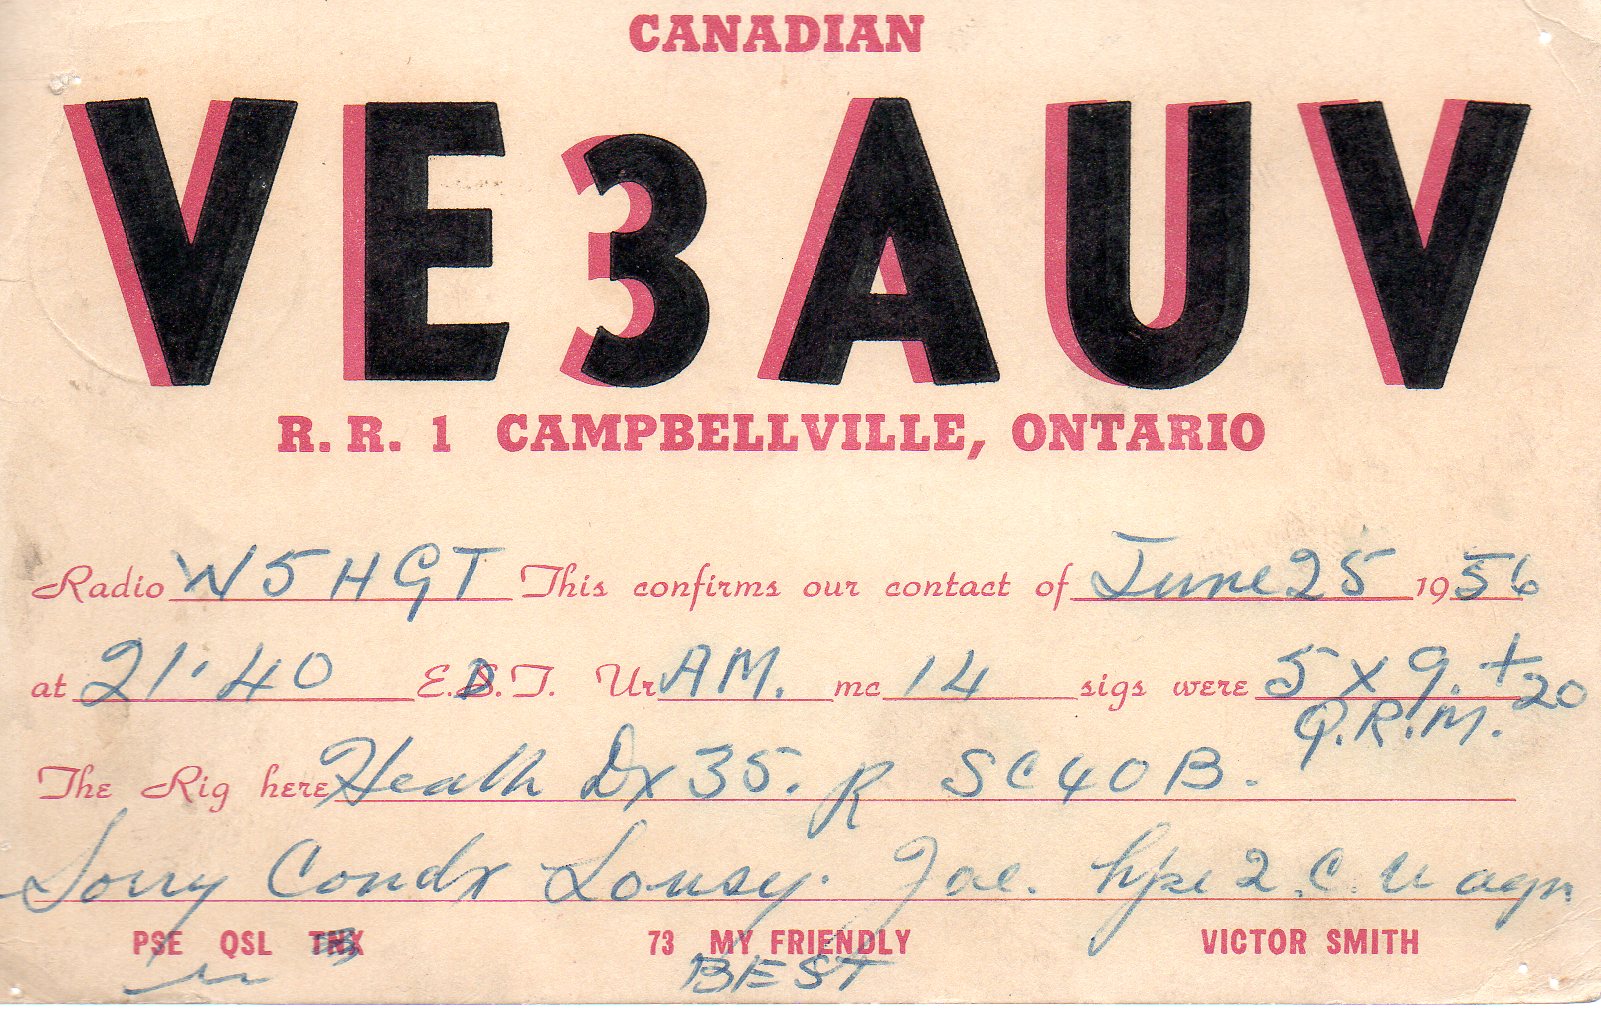 CANADIAN
VE3AUV
R. R. 1 CAMPBELLVILLE, ONTARIO
Radio W5HGT This confirms our contact of June 25 1956
at 21:40 E.D.T. Ur AM. mc 14 sigs were 5 x 9. + 20
Q.R.M.
The Rig here Heath Dx 35. R SC40B.
Sorry Condx Lousy. Joe. hpe 2. C. U agn.
PSE QSL TNX 73 MY FRIENDLY VICTOR SMITH
BEST